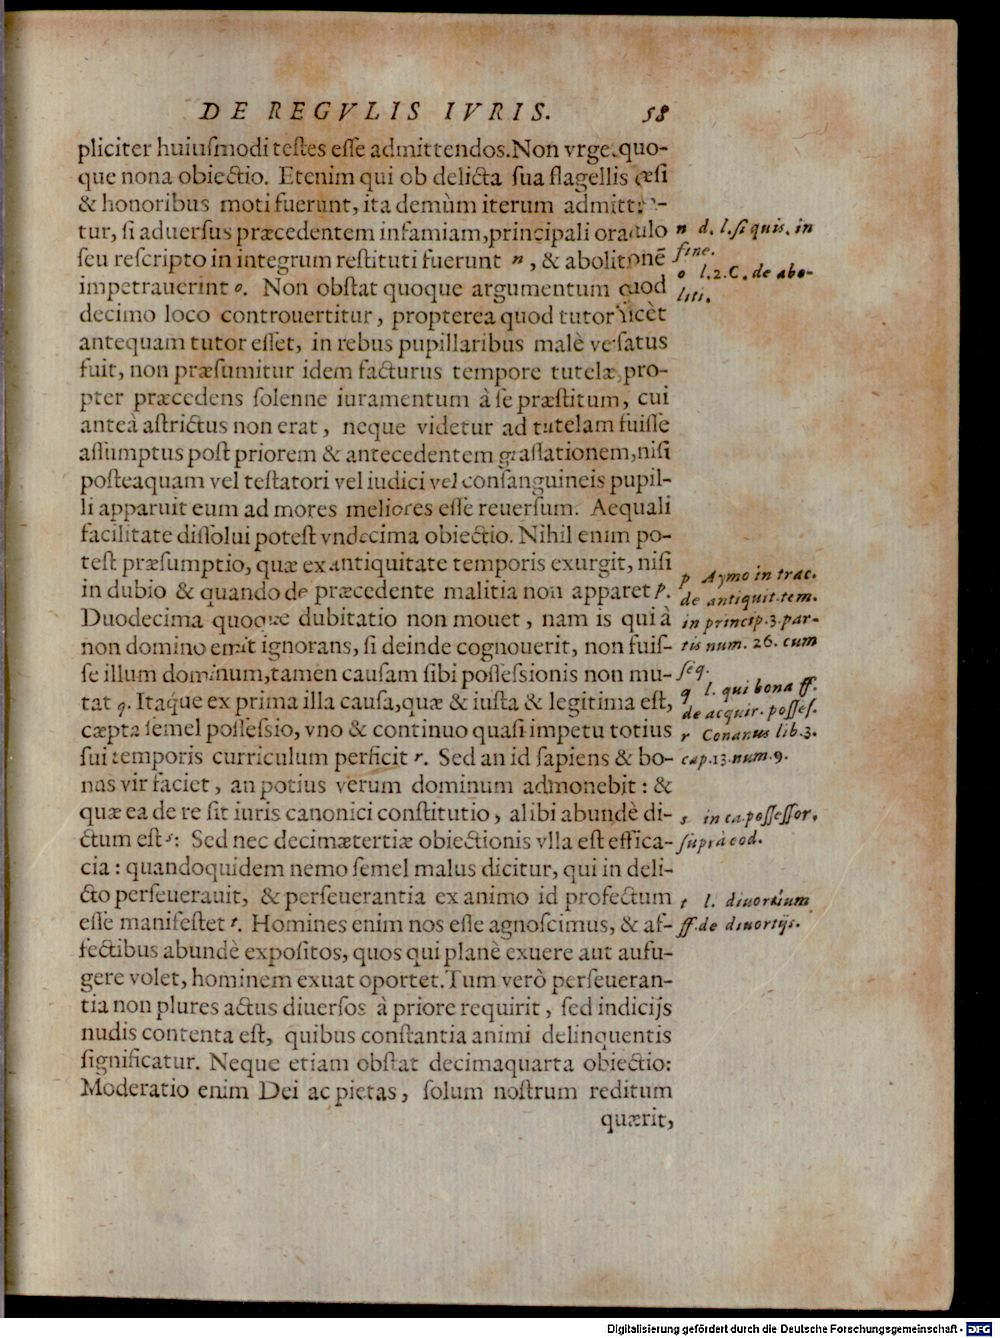 DE REGVLIS IVRIS. 58
pliciter huiuſmodi teſtes eſſe admittendos. Non vrge quo-
que nona obiectio. Etenim qui ob delicta ſua flagellis cæſi
& honoribus moti fuerunt, ita demùm iterum
tur, ſi aduerſus præcedentem infamiam, principali oraculo
ſeu reſcripto in integrum reſtituti fuerunt n, & abolitionē
impetrauerint o. Non obſtat quoque argumentum quod
decimo loco controuertitur, propterea quod tutor licèt
antequam tutor eſſet, in rebus pupillaribus malè verſatus
fuit, non præſumitur idem facturus tempore tutelæ, pro-
pter præcedens ſolenne iuramentum à ſe præſtitum, cui
anteà aſtrictus non erat, neque videtur ad tutelam fuiſſe
aſſumptus poſt priorem & antecedentem graſſationem, niſi
poſteaquam vel teſtatori vel iudici vel conſanguineis pupil-
li apparuit eum ad mores meliores eſſe reuerſum. Aequali
facilitate diſſolui poteſt vndecima obiectio. Nihil enim po-
teſt præſumptio, quæ ex antiquitate temporis exurgit, niſi
in dubio & quando de præcedente malitia non apparet p.
Duodecima quoque dubitatio non mouet, nam is qui à
non domino emit ignorans, ſi deinde cognouerit, non fuiſ-
ſe illum dominum, tamen cauſam ſibi poſſeſsionis non mu-
tat q. Itaq́ue ex prima illa cauſa, quæ & iuſta & legitima eſt,
cæpta ſemel poſſeſsio, vno & continuo quaſi impetu totius
ſui temporis curriculum perficit r. Sed an id ſapiens & bo-
nus vir faciet, an potius verum dominum admonebit: &
quæ ea de re ſit iuris canonici conſtitutio, alibi abundè di-
ctum eſt s: Sed nec decimætertiæ obiectionis vlla eſt effica-
cia: quandoquidem nemo ſemel malus dicitur, qui in deli-
cto perſeuerauit, & perſeuerantia ex animo id profectum
eſſe manifeſtet t. Homines enim nos eſſe agnoſcimus, & af-
fectibus abundè expoſitos, quos qui planè exuere aut aufu-
gere volet, hominem exuat oportet. Tum verò perſeueran-
tia non plures actus diuerſos à priore requirit, ſed indicijs
nudis contenta eſt, quibus conſtantia animi delinquentis
ſignificatur. Neque etiam obſtat decimaquarta obiectio:
Moderatio enim Dei ac pietas, ſolum noſtrum reditum
quærit,
n d. l. ſi quis. in
fine.
o l. 2. C. de abo-
liti.
p Aymo in trac.
de antiquit. tem.
in princip. 3. par-
tis num. 26. cum
ſeq.
q l. qui bona ff.
de acquir. poſſeſ.
r Conanus lib. 3.
cap. 13. num. 9.
s in ca. poſſeſſor.
ſuprà eod.
t l. diuortium
ff. de diuortijs.
Digitalisierung gefördert durch die Deutsche Forschungsgemeinschaft - DFG